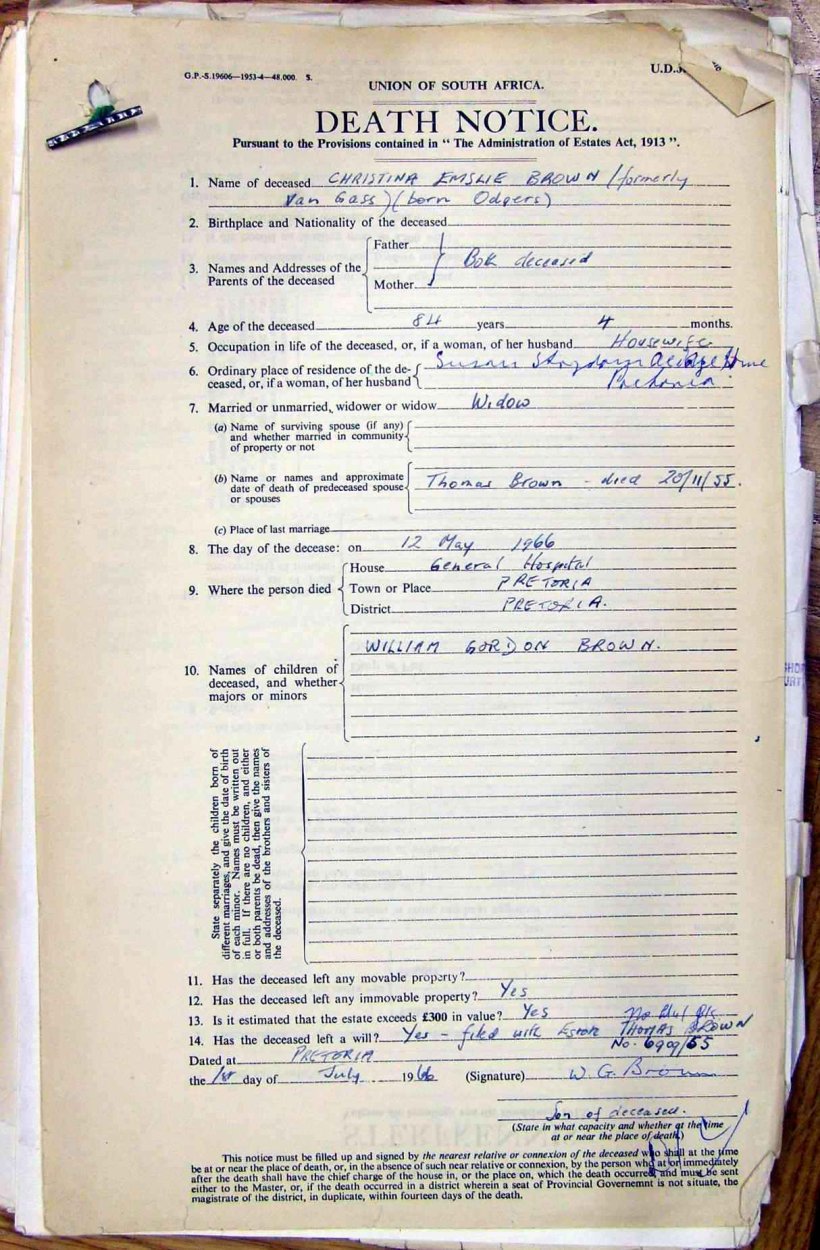 G.P.-S.19606—1953-4—48,000. S.
U.D.J.
UNION OF SOUTH AFRICA.
DEATH NOTICE.
Pursuant to the Provisions contained in “ The Administration of Estates Act, 1913 ”.
1. Name of deceased CHRISTINA EMSLIE BROWN (formerly
Van Gass) (born Odgers)
2. Birthplace and Nationality of the deceased
3. Names and Addresses of the Parents of the deceased
Father
Both deceased
Mother
4. Age of the deceased 84 years 4 months.
5. Occupation in life of the deceased, or, if a woman, of her husband Housewife
6. Ordinary place of residence of the de- Susan Strydom Old Age Home
ceased, or, if a woman, of her husband Pretoria.
7. Married or unmarried, widower or widow Widow
(a) Name of surviving spouse (if any)
and whether married in community
of property or not
(b) Name or names and approximate
date of death of predeceased spouse Thomas Brown - died 20/11/55.
or spouses
(c) Place of last marriage
8. The day of the decease: on 12 May 1966
9. Where the person died
House General Hospital
Town or Place PRETORIA
District PRETORIA.
WILLIAM GORDON BROWN.
10. Names of children of
deceased, and whether
majors or minors
State separately the children born of
different marriages, and give the date of birth
of each minor. Names must be written out
in full. If there are no children, and either
or both parents be dead, then give the names
and addresses of the brothers and sisters of
the deceased.
11. Has the deceased left any movable property?
12. Has the deceased left any immovable property? Yes
13. Is it estimated that the estate exceeds £300 in value? Yes
14. Has the deceased left a will? Yes - filed with Estate THOMAS BROWN
No. 6909/55
Dated at PRETORIA
the 1st day of July 1966 (Signature) W. G. Brown
Son of deceased.
(State in what capacity and whether at the time
at or near the place of death)
This notice must be filled up and signed by the nearest relative or connexion of the deceased who shall at the time
be at or near the place of death, or, in the absence of such near relative or connexion, by the person who at or immediately
after the death shall have the chief charge of the house in, or the place on, which the death occurred and must be sent
either to the Master, or, if the death occurred in a district wherein a seat of Provincial Governemnt is not situate, the
magistrate of the district, in duplicate, within fourteen days of the death.